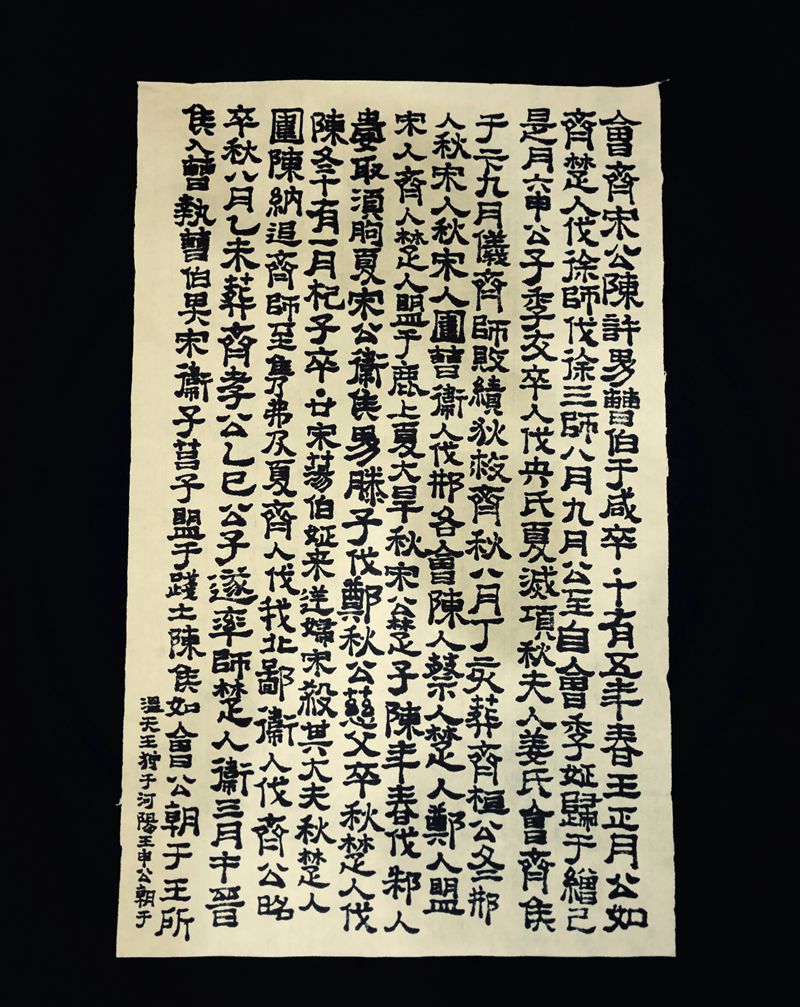 會齊宋公陳許男曹伯于咸卒·十有五年春王正月公如
齊楚人伐徐師伐徐三師八月九月公至自會季姬歸于繒己
是月六申公子季友卒人伐央氏夏滅項秋夫人姜氏會齊侯
于云九月儀齊師敗績狄救齊秋八月丁亥葬齊桓公冬邢
人秋宋人秋宋人圍曹衞人伐邢各會陳人蔡人楚人鄭人盟
宋人齊人楚人盟于鹿上夏大旱秋宋公楚子陳年春伐邾人
婁取須朐夏宋公衞侯男滕子伐鄭秋公慈父卒秋楚人伐
陳冬十有一月杞子卒·廿宋蕩伯姬来逆婦宋殺其大夫秋楚人
圍陳納追齊師至弗及夏齊人伐我北鄙衞人伐齊公昭
卒秋八月乙未葬齊孝公乙巳公子遂率師楚人衞三月十晋
侯入曹執曹伯畀宋衞子莒子盟于踐土陳侯如會公朝于王所
溫天王狩于河陽王申公朝于